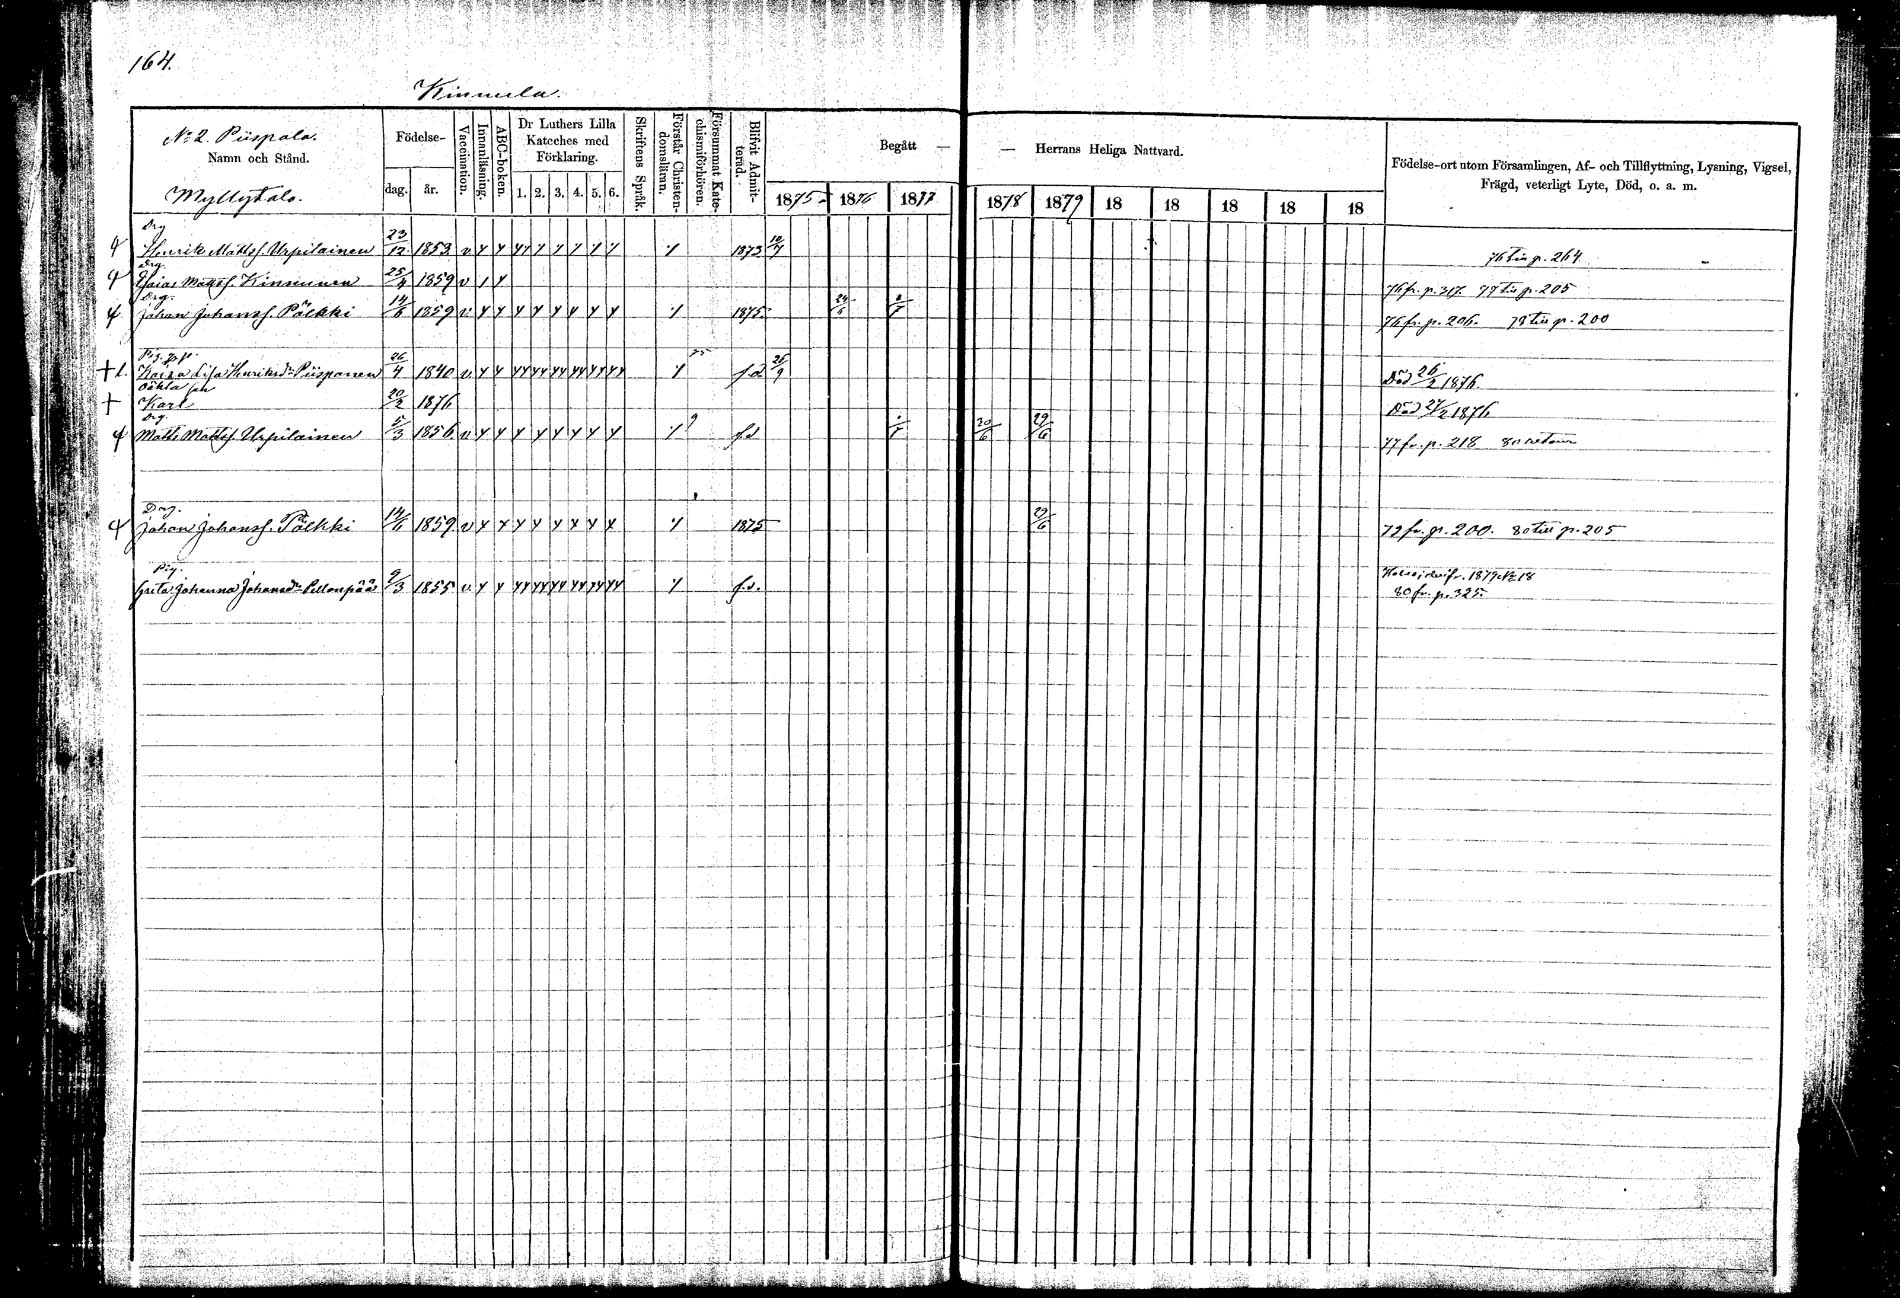 164.
Kinnula.
No 2. Piispala.
Namn och Stånd.
Myllytalo.
Födelse-
dag. år.
Vaccination.
Innanläsning.
ABC-boken.
Dr Luthers Lilla
Kateches med
Förklaring.
1. 2. 3. 4. 5. 6.
Skriftens Språk.
Förstår Christen-
domsläran.
Försummat Kate-
chismiförhören.
Blifvit Admit-
terad.
Begått — — Herrans Heliga Nattvard.
1875 1876 1877 1878 1879 18 18 18 18 18
Födelse-ort utom Församlingen, Af- och Tillflyttning, Lysning, Vigsel,
Frägd, veterligt Lyte, Död, o. a. m.
Drg
Henrik Mattss. Urpilainen 23/12 1853. v 1873 76 till p. 264
Drg
Esaias Mattss. Kinnunen 25/4 1859 v 76 fr. p. 317. 77 till p. 205
Drg.
Johan Johanss. Pölkki 14/6 1859 v 1875. 24/6 76 fr. p. 206. 78 till p. 200
Pig.
Kaisa Lisa Henriksdr Piisponen 26/4 1840 v f.d. 26/9 Död 26/2 1876.
oäkta son
Karl 20/2 1876 Död 27/2 1876
Drg.
Matts Mattss. Urpilainen 5/3 1856 v f.d 30/6 29/6 77 fr. p. 218 80 retour
Drg.
Johan Johanss. Pölkki 14/6 1859. v 1875 29/6 79 fr. p. 200. 80 till p. 205
Pig.
Greta Johanna Johansdr Pellonpää 9/3 1855 v f.d. 1879 No 18
80 fr. p. 325.